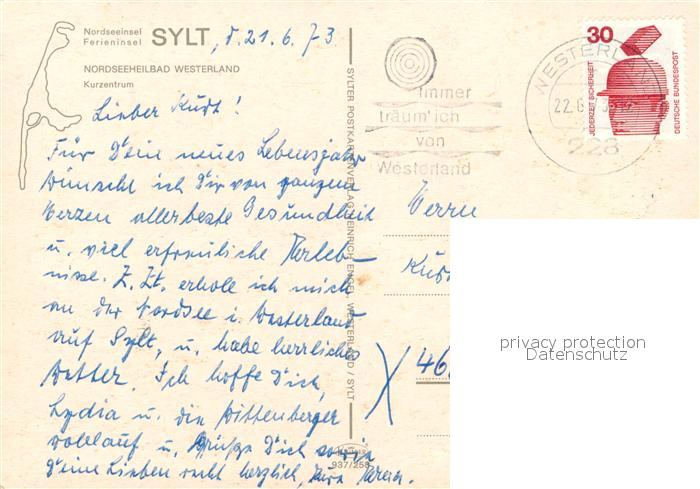 Nordseeinsel
Ferieninsel SYLT, d. 21.6.73.
NORDSEEHEILBAD WESTERLAND
Kurzentrum
Lieber Kurt!
Für Deine neues Lebensjahr
wünsche ich Dir von ganzem
Herzen allerbeste Gesundheit
u. viel erfreuliche
Z. Zt. erhole ich mich
an der Nordsee i. Westerland
auf Sylt, u. habe herrliches
Wetter. Ich hoffe Dich,
Lydia u. die Wittenberger
wohlauf u. grüße Dich sowie
Deine Lieben recht herzlich,
SYLTER POSTKARTENVERLAG HEINRICH ENGEL, WESTERLAND / SYLT
937/258
immer
träum' ich
von
Westerland
WESTERLAND
22.6.
228
30
JEDERZEIT SICHERHEIT
DEUTSCHE BUNDESPOST
Herrn
privacy protection
Datenschutz